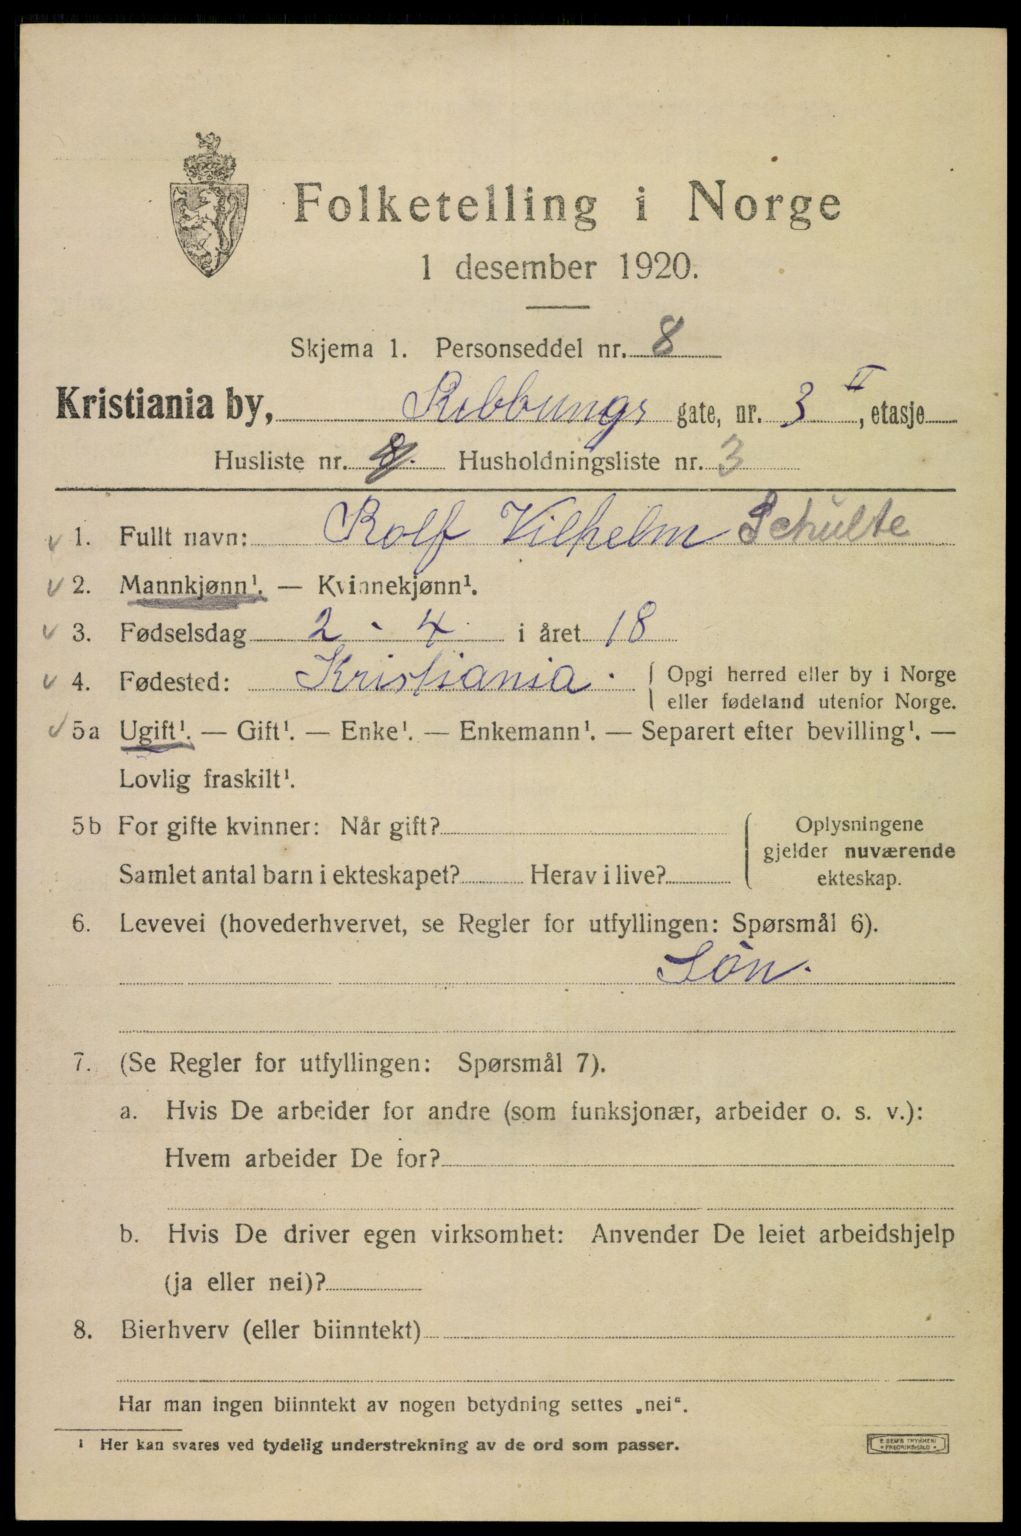 Folketelling i Norge
1 desember 1920.
Skjema 1. Personseddel nr. 8
Kristiania by, Ribbungs gate, nr. 3 II, etasje
Husliste nr. Husholdningsliste nr. 3
1. Fullt navn: Rolf Vilhelm Schulte
2. Mannkjønn¹. — Kvinnekjønn¹.
3. Fødselsdag 2 - 4 i året 18
4. Fødested: Kristiania. Opgi herred eller by i Norge
eller fødeland utenfor Norge.
5a Ugift¹. — Gift¹. — Enke¹. — Enkemann¹. — Separert efter bevilling¹. —
Lovlig fraskilt¹.
5b For gifte kvinner: Når gift?
Samlet antal barn i ekteskapet? Herav i live?
Oplysningene
gjelder nuværende
ekteskap.
6. Levevei (hovederhvervet, se Regler for utfyllingen: Spørsmål 6).
Søn.
7. (Se Regler for utfyllingen: Spørsmål 7).
a. Hvis De arbeider for andre (som funksjonær, arbeider o. s. v.):
Hvem arbeider De for?
b. Hvis De driver egen virksomhet: Anvender De leiet arbeidshjelp
(ja eller nei)?
8. Bierhverv (eller biinntekt)
Har man ingen biinntekt av nogen betydning settes „nei“.
¹ Her kan svares ved tydelig understrekning av de ord som passer.